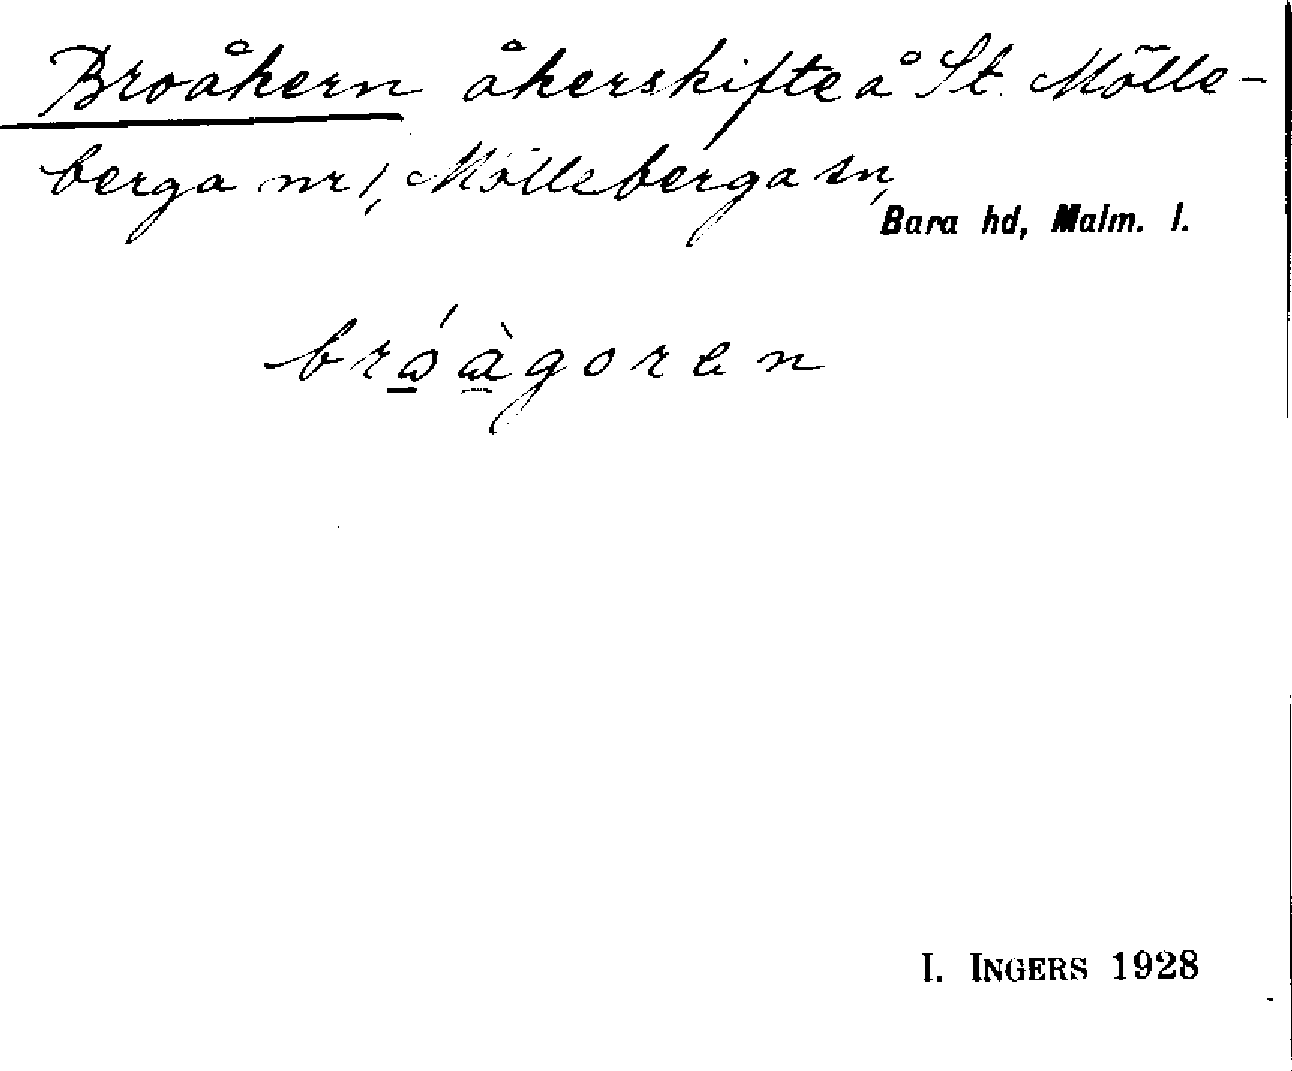 Broåkern åkerskifte å St. Mölle-
berga nr 1, Möllebergasn,
Bara hd, Malm. l.
bróàgoren
I. INGERS 1928